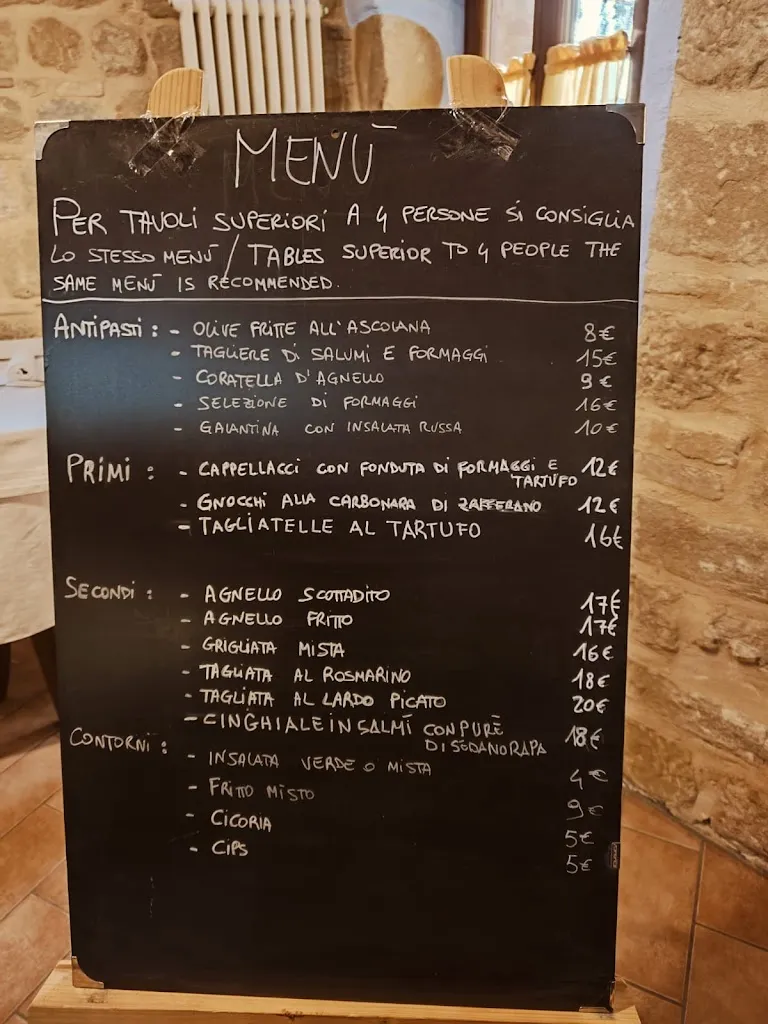 MENÙ
PER TAVOLI SUPERIORI A 4 PERSONE SI CONSIGLIA
LO STESSO MENÙ / TABLES SUPERIOR TO 4 PEOPLE THE
SAME MENÙ IS RECOMMENDED.
ANTIPASTI : - OLIVE FRITTE ALL'ASCOLANA 8€
- TAGLIERE DI SALUMI E FORMAGGI 15€
- CORATELLA D'AGNELLO 9€
- SELEZIONE DI FORMAGGI 16€
- GALANTINA CON INSALATA RUSSA 10€
PRIMI : - CAPPELLACCI CON FONDUTA DI FORMAGGI E 12€
TARTUFO
- GNOCCHI ALLA CARBONARA DI ZAFFERANO 12€
- TAGLIATELLE AL TARTUFO 16€
SECONDI : - AGNELLO SCOTTADITO 17€
- AGNELLO FRITTO 17€
- GRIGLIATA MISTA 16€
- TAGLIATA AL ROSMARINO 18€
- TAGLIATA AL LARDO PICATO 20€
- CINGHIALE IN SALMÍ CON PURÈ 18€
DI SEDANO RAPA
CONTORNI :
- INSALATA VERDE O MISTA 4€
- FRITTO MISTO 9€
- CICORIA 5€
- CIPS 5€